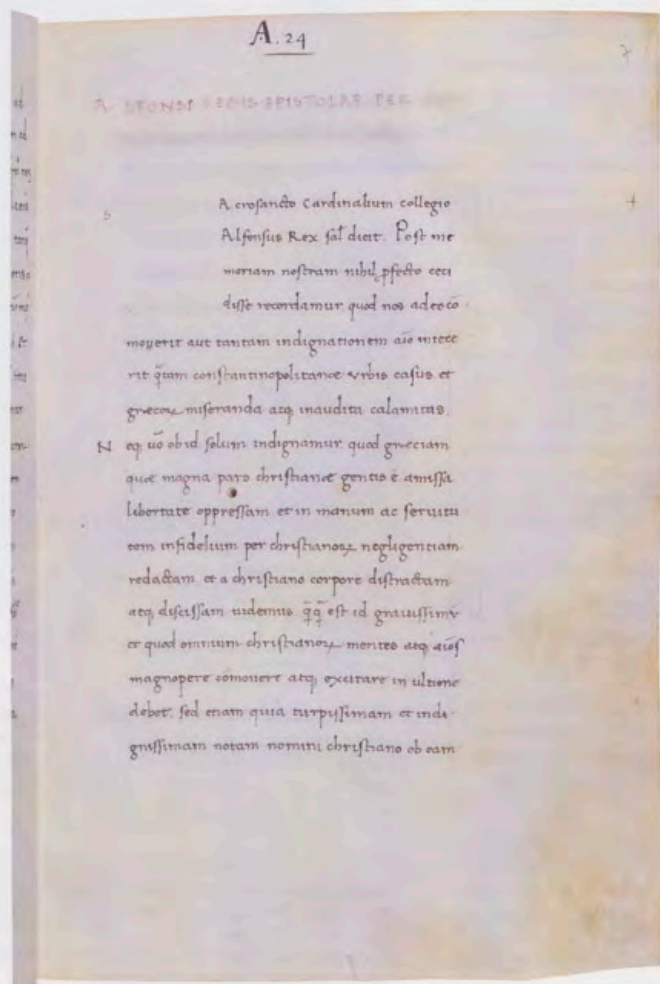 A. 24
7
ALFONSI REGIS EPISTOLAE PER
s
Acrosancto Cardinalium collegio
Alfonsus Rex sal̄ dicit. Post me
moriam nostram nihil ꝓfecto ceci
disse recordamur quod nos adeo cō
mouerit aut tantam indignationem aīo iniece
rit q̄tam constantinopolitanae vrbis casus et
grecoꝝ miseranda atqꝫ inaudita calamitas.
Neqꝫ uō ob id solum indignamur quod greciam
quae magna pars christianae gentis ē amissa
libertate oppressam et in manum ac seruitu
tem infidelium per christianoꝝ negligentiam
redactam et a christiano corpore distractam
atqꝫ discissam uidemus q̄q̄ est id grauissimū
et quod omnium christianoꝝ mentes atqꝫ aīos
magnopere cōmouere atqꝫ excitare in ultionē
debet. sed etiam quia turpissimam et indi
gnissimam notam nomini christiano ob eam